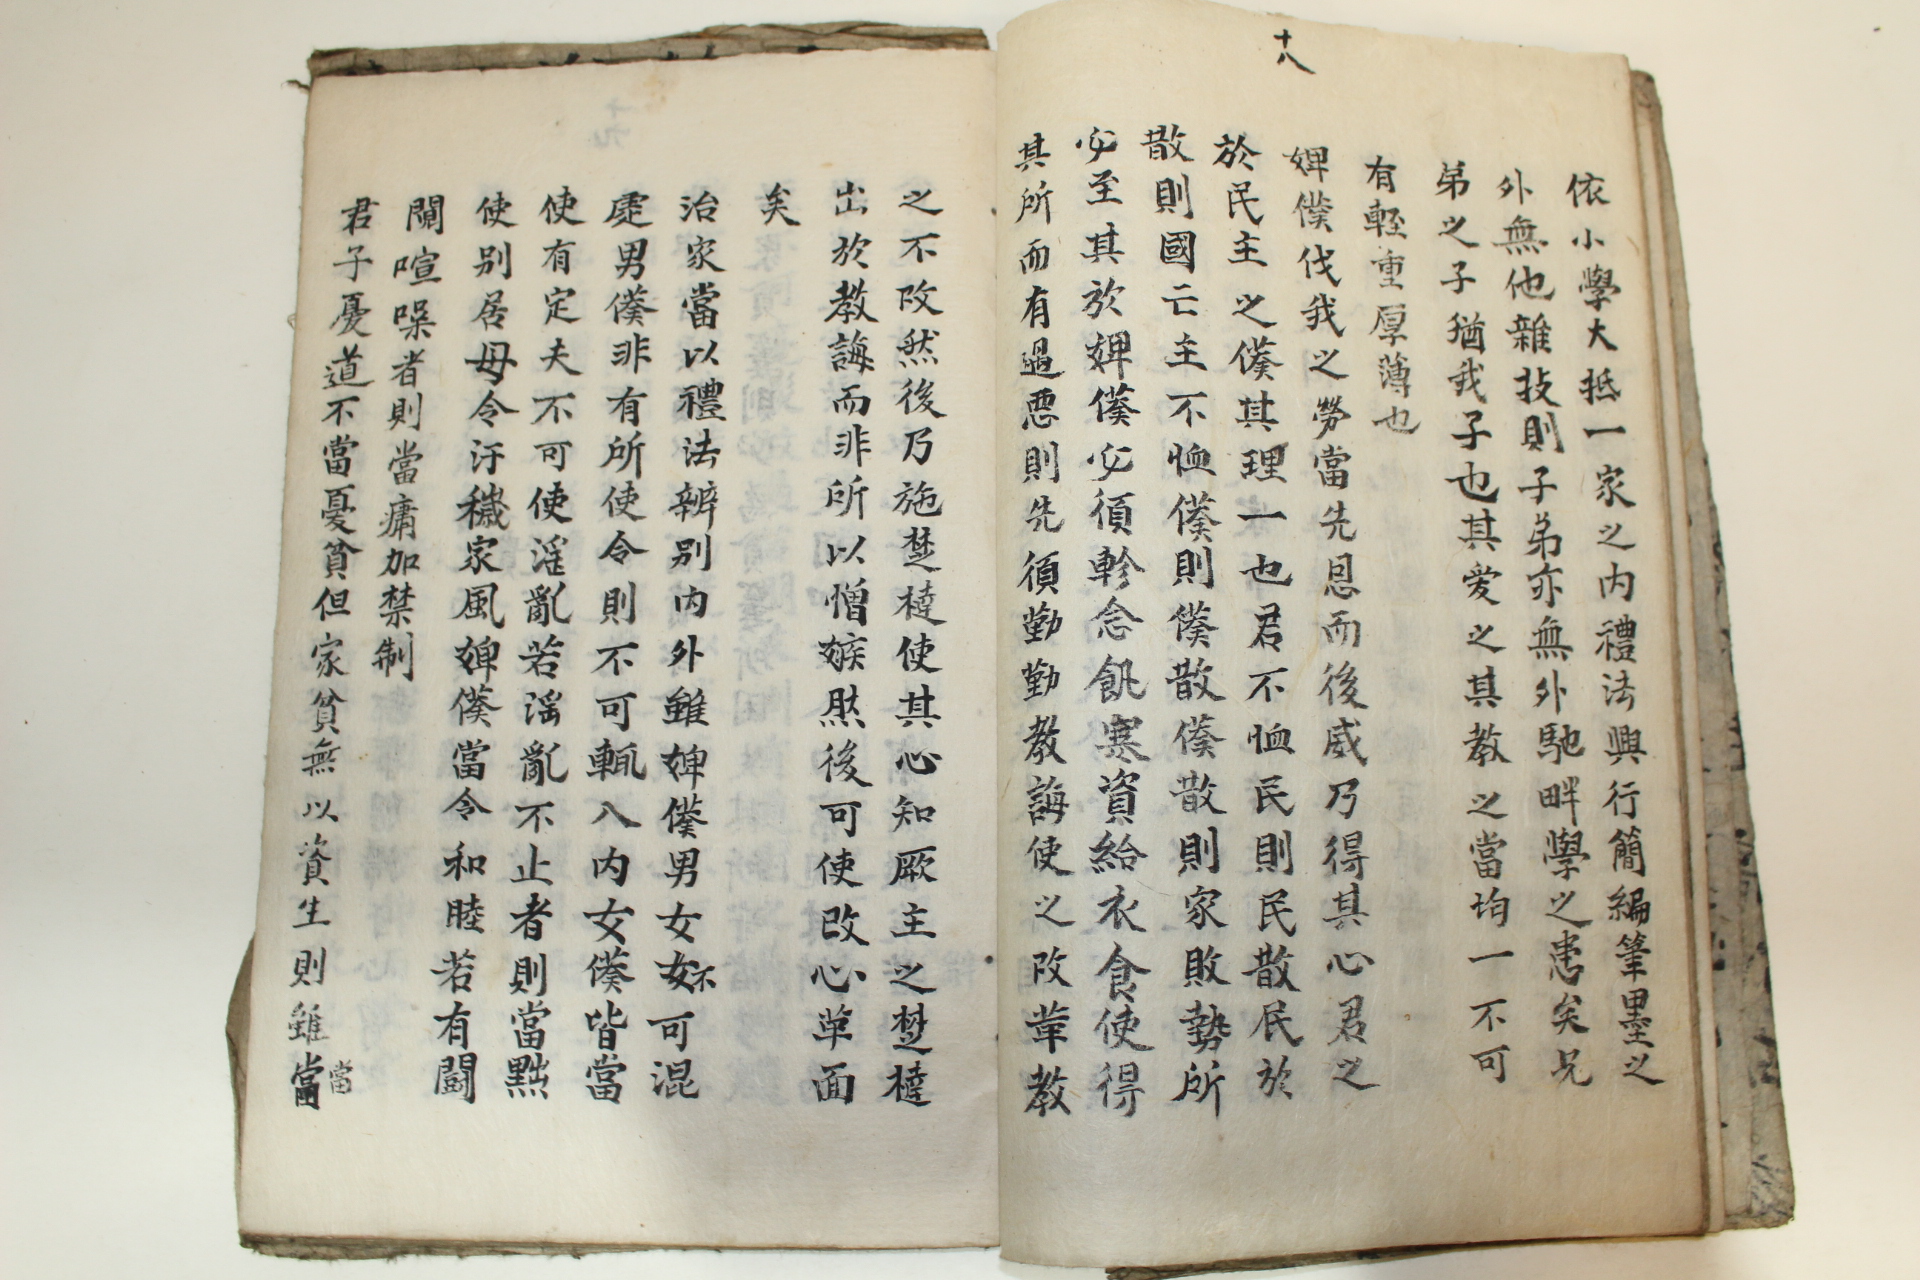 十八
依小學大抵一家之內禮法興行簡編筆墨之
外無他雜技則子弟亦無外馳畔學之患矣兄
弟之子猶我子也其愛之其教之當均一不可
有輕重厚薄也
婢僕代我之勞當先恩而後威乃得其心君之
於民主之僕其理一也君不恤民則民散民於
散則國亡主不恤僕則僕散僕散則家敗勢所
必至其於婢僕必須軫念飢寒資給衣食使得
其所而有過惡則先須勤勤教誨使之改革教
之不改然後乃施楚撻使其心知厥主之楚撻
出於教誨而非所以憎嫉然後可使改心革面
矣
治家當以禮法辨別內外雖婢僕男女不可混
處男僕非有所使令則不可輒入內女僕皆當
使有定夫不可使淫亂若淫亂不止者則當黜
使別居毋令汙穢家風婢僕當令和睦若有鬪
鬩喧噪者則當痛加禁制
君子憂道不當憂貧但家貧無以資生則雖當
當
十九